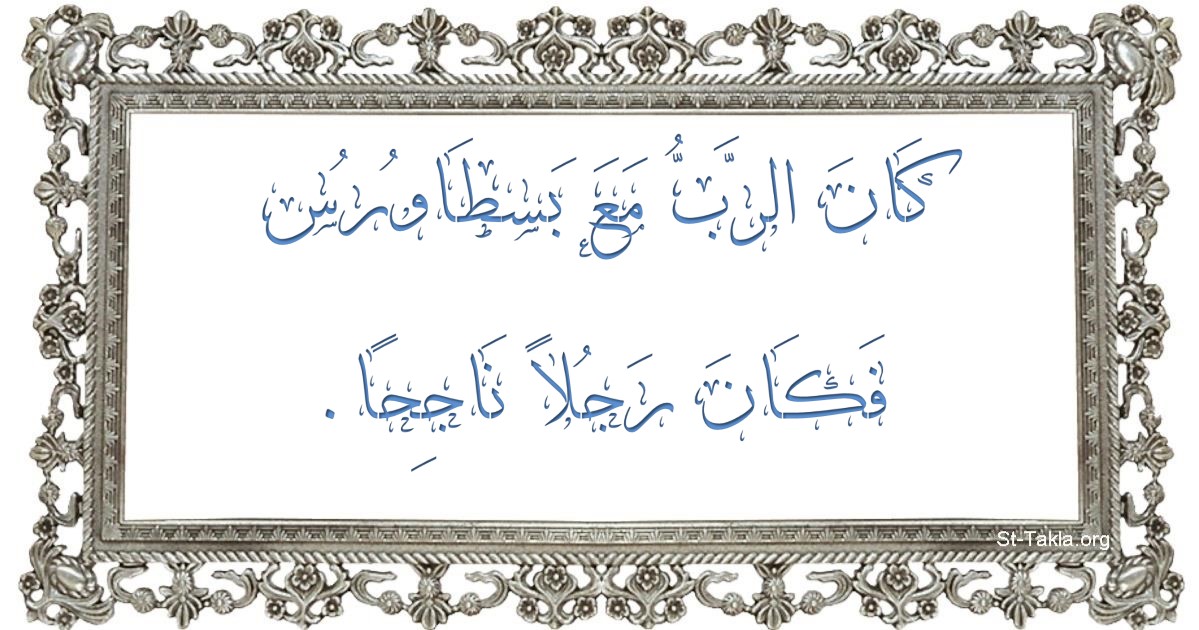 كَانَ الرَّبُّ مَعَ بَسطَاورُرُس
فَكَانَ رَجُلاً نَاجِحًا .
St-Takla.org